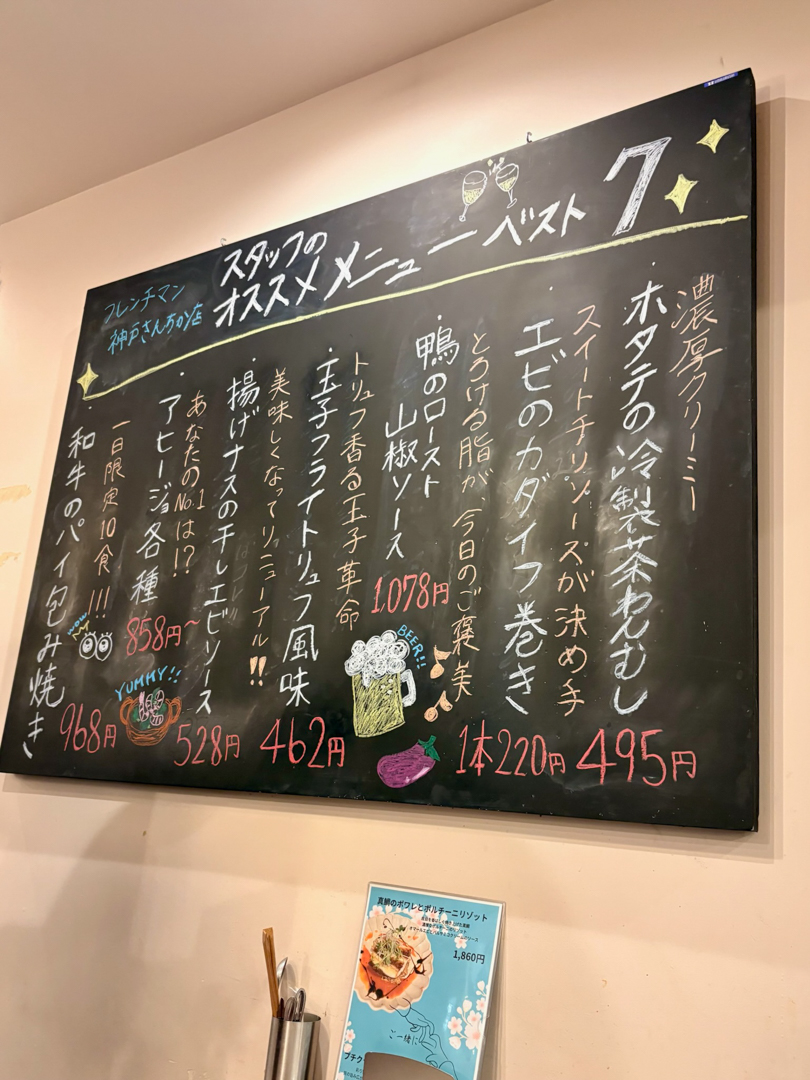 スタッフの
オススメメニューベスト7
フレンチマン
神戸さんちか店
濃厚クリーミー
・ホタテの冷製茶わんむし
495円
スイートチリソースが決め手
・エビのカダイフ巻き
1本220円
とろける脂が、今日のご褒美
・鴨のロースト
山椒ソース
1,078円
BEER!!
トリュフ香る玉子革命
・玉子フライトリュフ風味
462円
美味しくなってリニューアル!!
・揚げナスの干しエビソース
528円
あなたのNo.1
は!?
・アヒージョ各種
858円~
YUMMY!!
一日限定10食!!!
WOW
・和牛のパイ包み焼き
968円
真鯛のポワレとポルチーニリゾット
1,860円
ご一緒に
プチ